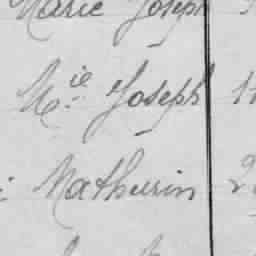 Marie Joseph
Mie Joseph
Mathurin 2